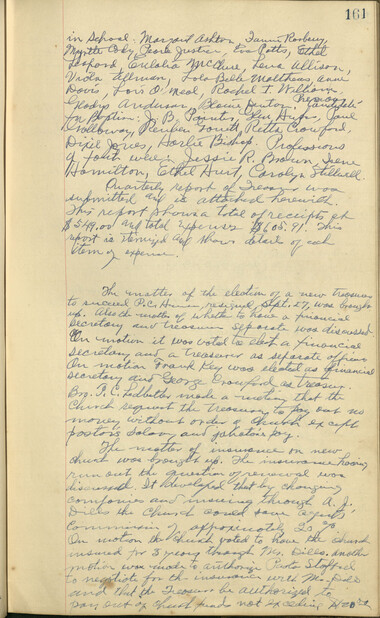 161
in School. Margaret Ashton, Fannie Rosberry,
Myrtle Coby, Pearl Justice, Eva Potts, Ethel
Ledford, Eulalia McClure, Lena Allison,
Viola Allman, Lola Belle Matthews, Anne
Davis, Lois O'Neal, Rachel T. William
Gladys Anderson, Blaine Denton.
for Baptism: J. B. Points, Paul
Holloway, Reuben Fouts, Retta Crawford,
Dixie Jones, Harlie Bishop. Professions
of faith were: Jessie R. Brown, Irene
Hamilton, Ethel Hurt, Carolyn Stillwell.
Quarterly report of Treasurer was
submitted and is attached herewith.
This report shows a total of receipts of
$549.00 and total expenses $605.91. This
report is itemized and shows detail of each
item of expense.
The matter of the election of a new treasurer
to succeed P.C. resigned, Sept. 27, was brought
up. Also the matter of whether to have a financial
secretary and treasurer separate was discussed.
On motion it was voted to elect a financial
secretary and a treasurer as separate offices
On motion Frank Key was elected as financial
secretary and George Crawford as treasurer.
Bro. T. C. Ledbetter made a motion that the
Church request the treasurer to pay out no
money without order of Church except
pastors salary and janitors pay.
The matter of insurance on new
church was brought up. The insurance having
run out the question of renewal was
discussed. It developed that by changing
companies and insuring through A. J.
Dills the Church could save agents
commission of approximately 20%
On motion the Church voted to have the Church
insured for 3 years through Mr. Dills. Another
motion was made to authorize Pastor Stafford
to negotiate for the insurance with Mr. Dills
and that the Treasurer be authorized to
pay out of Church funds not exceeding